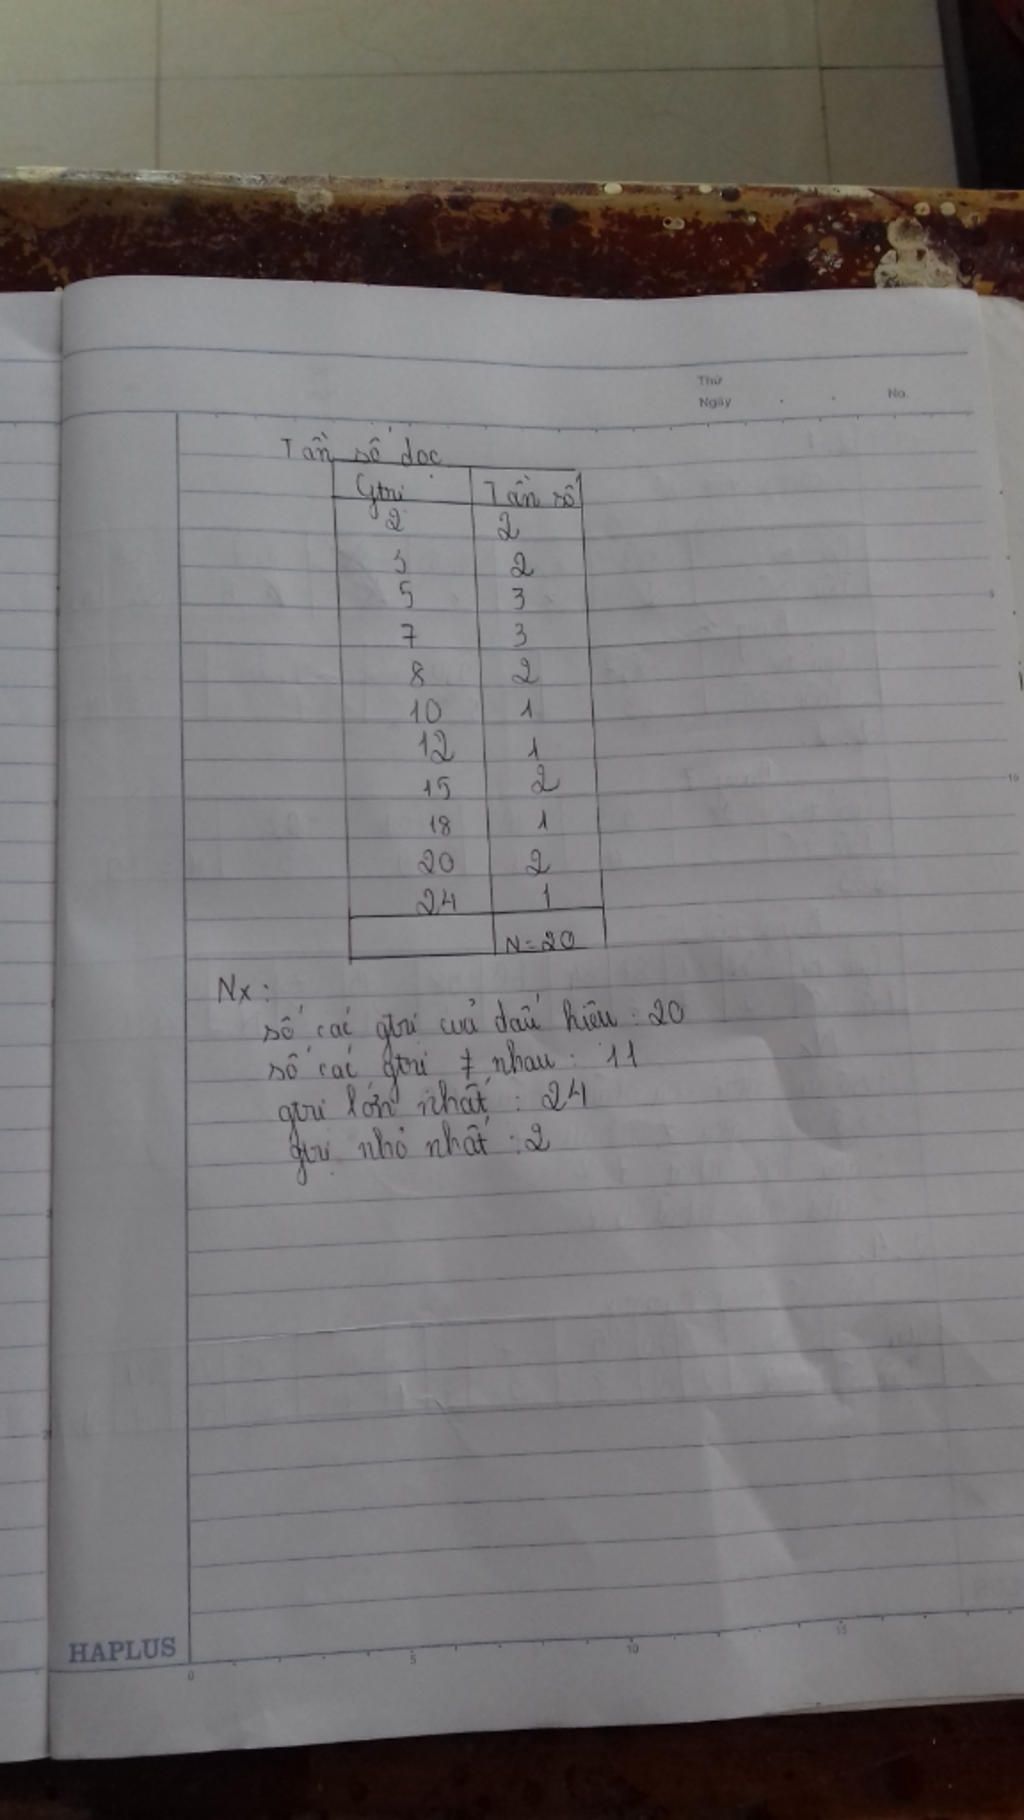 Thứ
Ngày . . No.
Tần số dọc
Gtrị Tần số
2 2
3 2
5 3
7 3
8 2
10 1
12 1
15 2
18 1
20 2
24 1
N = 20
Nx:
số các gtrị của dấu hiệu : 20
số các gtrị ≠ nhau : 11
gtrị lớn nhất : 24
gtrị nhỏ nhất : 2
HAPLUS
0 5 10 15